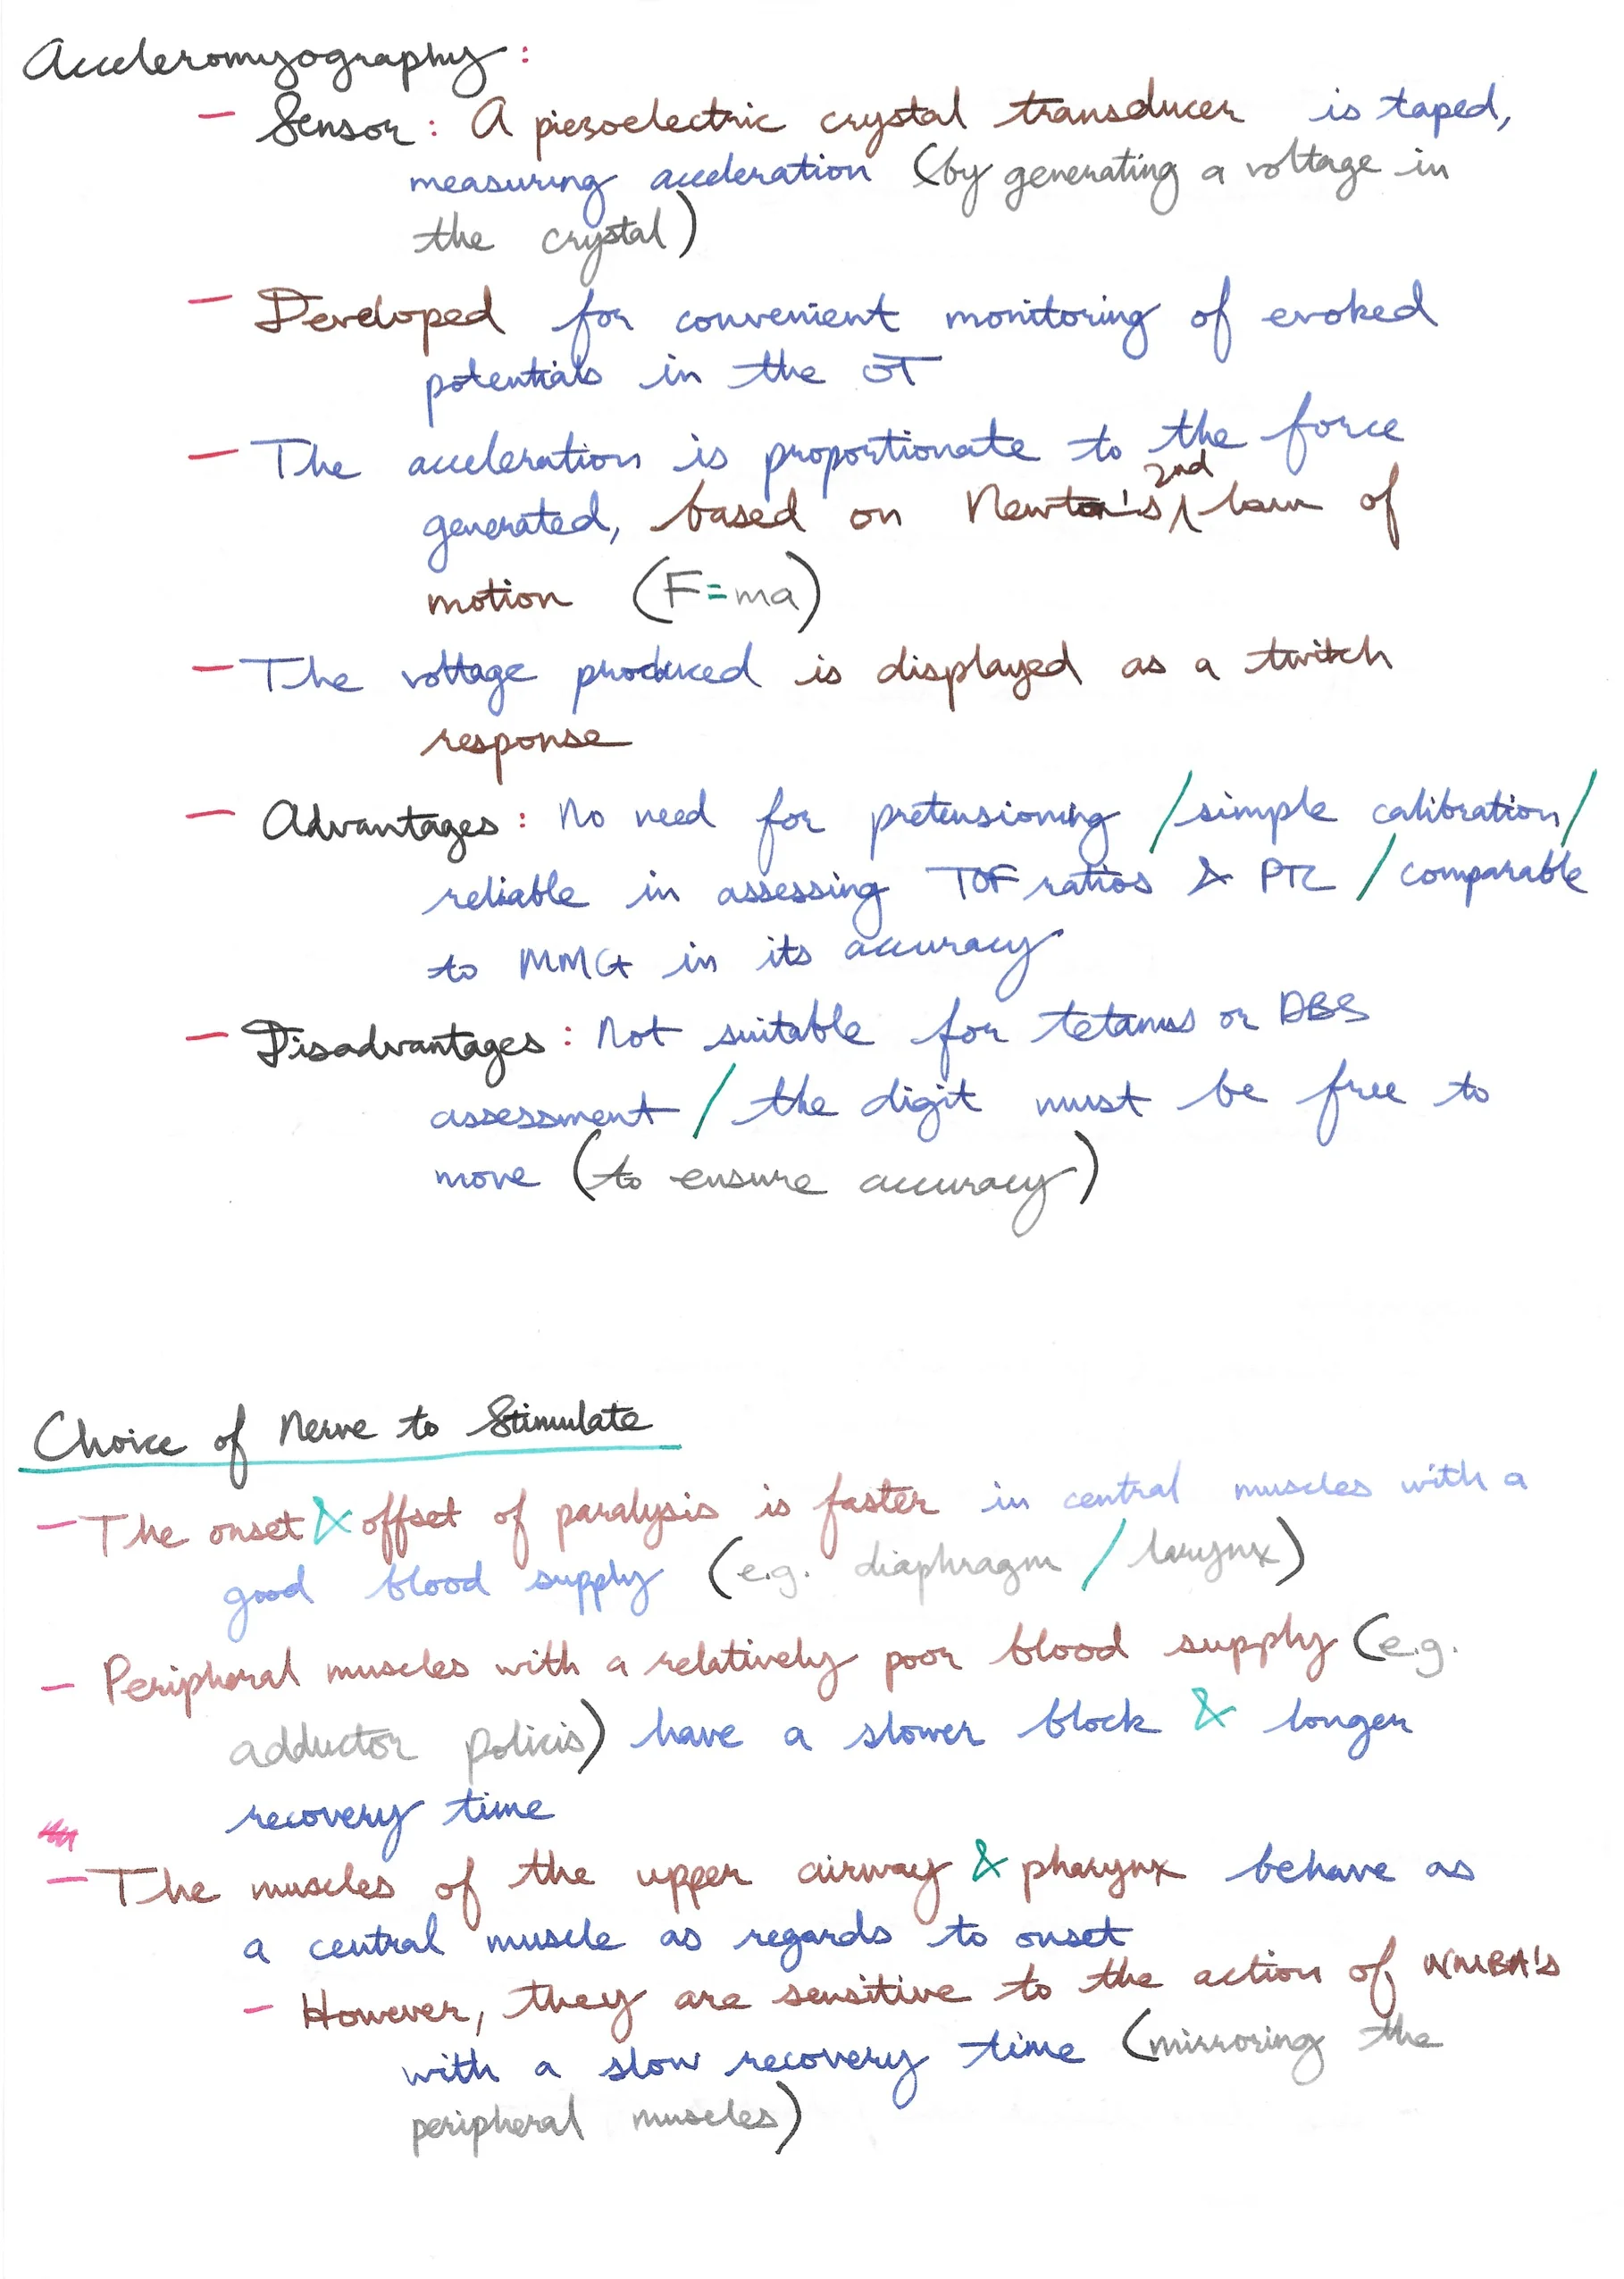 Acceleromyography:
- Sensor: A piezoelectric crystal transducer is taped,
measuring acceleration (by generating a voltage in
the crystal)
- Developed for convenient monitoring of evoked
potentials in the OT
- The acceleration is proportionate to the force
generated, based on Newton's 2nd law of
motion (F=ma)
- The voltage produced is displayed as a twitch
response
- Advantages: No need for pretensioning / simple calibration /
reliable in assessing TOF ratios & PTC / comparable
to MMG in its accuracy
- Disadvantages: Not suitable for tetanus or DBS
assessment / the digit must be free to
move (to ensure accuracy)
Choice of Nerve to Stimulate
- The onset & offset of paralysis is faster in central muscles with a
good blood supply (e.g. diaphragm / larynx)
- Peripheral muscles with a relatively poor blood supply (e.g.
adductor policis) have a slower block & longer
recovery time
- The muscles of the upper airway & pharynx behave as
a central muscle as regards to onset
- However, they are sensitive to the action of NMBA's
with a slow recovery time (mirroring the
peripheral muscles)